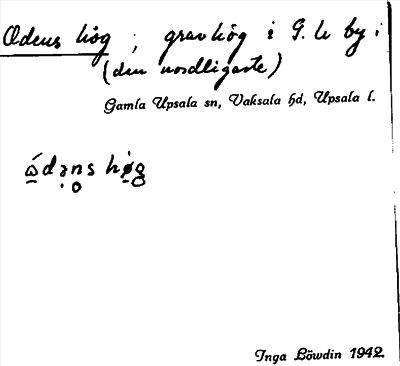 Odens hög ; gravhög i G. U by i
(den nordligaste)
Gamla Upsala sn, Vaksala hd, Upsala l.
ώdəns høg
Inga Löwdin 1942.